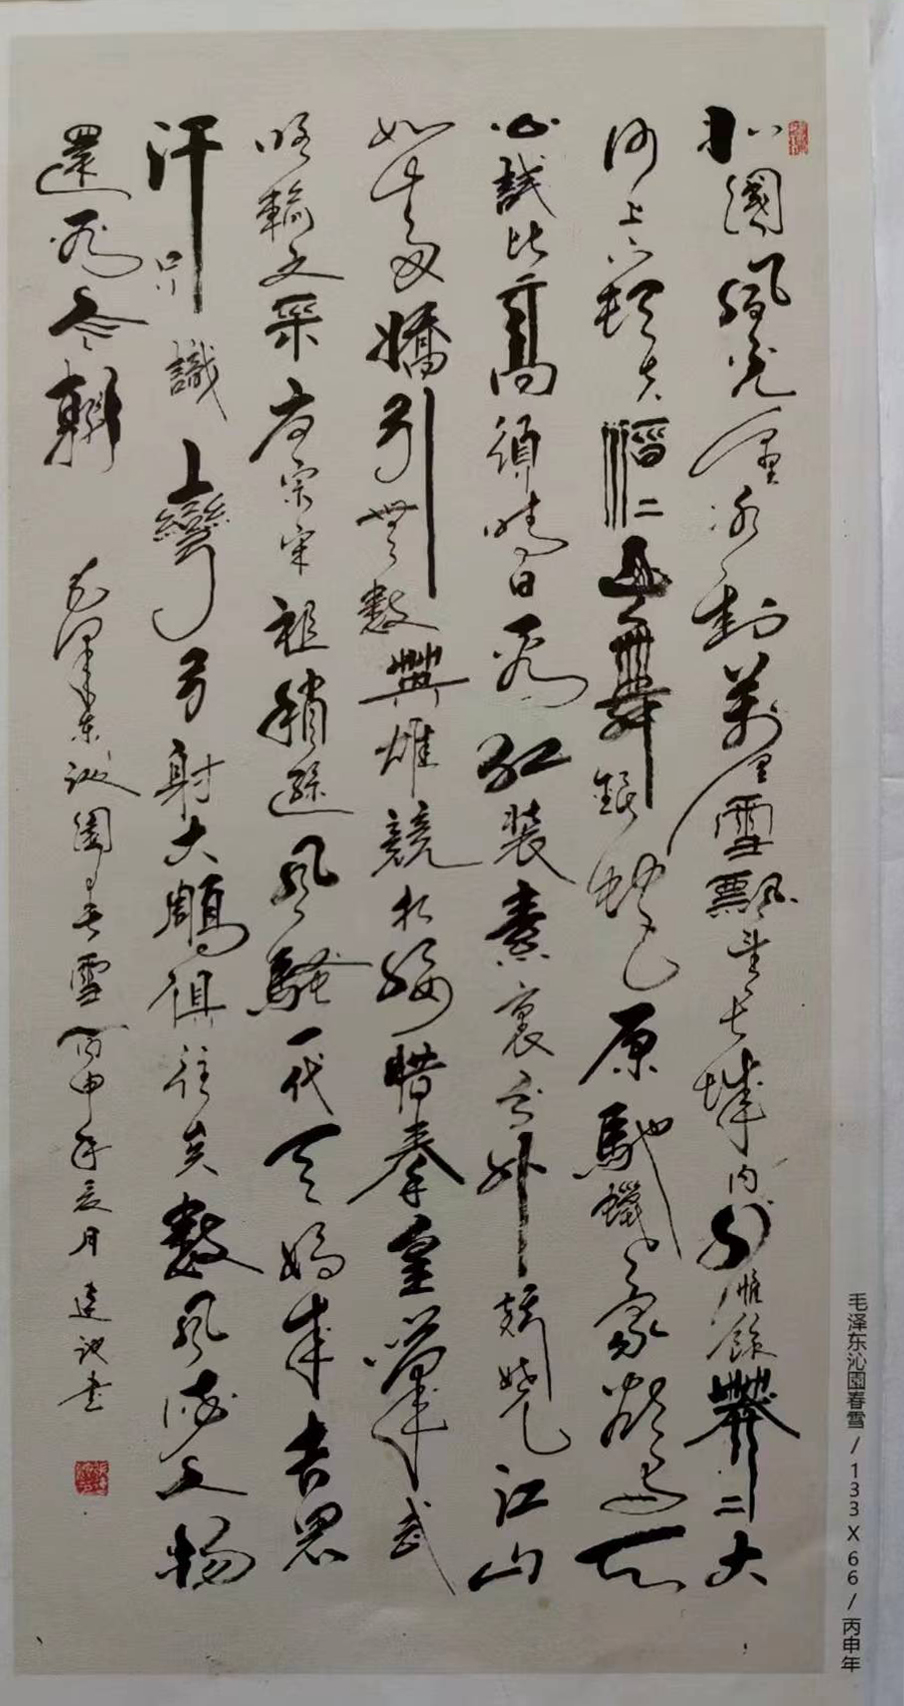 北國風光千里冰封萬里雪飄望長城内外惟餘莽二大
河上下頓失滔二山舞銀蛇原馳蠟象欲与天
公試比高須晴日看紅装素裹分外妖嬈江山
如此多嬌引無數英雄競折腰惜秦皇漢武
略輸文采唐宗宋祖稍遜風騷一代天驕成吉思
汗只識彎弓射大鵰俱往矣數風流人物
還看今朝 毛澤東沁園春雪丙申年月建書
毛泽东沁園春雪 / 133 X 66 / 丙申年